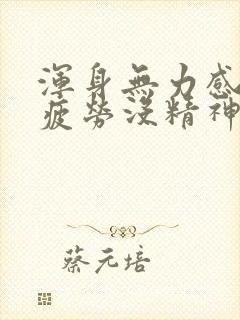 渾身無力感
疲勞沒精神
蔡元培